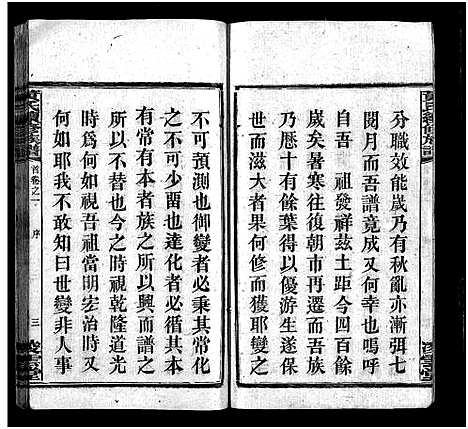 分職效能歲乃有秋亂亦漸弭七
閱月而吾譜竟成又何幸也嗚呼
自吾 祖發祥茲土距今四百餘
歲矣暑寒往復朝市再遷而吾族
乃歷十有餘葉得以優游生息大
蕃大滋是果何修而獲耶變之
不可預測也御變者必乘其常治
之不可少留也達化者必循其本
有常有本者族之所以興而譜之
所以不替也今之時視乾隆道光
時爲何如視吾祖當明宏治時又
何如耶我不敢知曰世變非人事
氏續修族譜
首卷之一 序 三